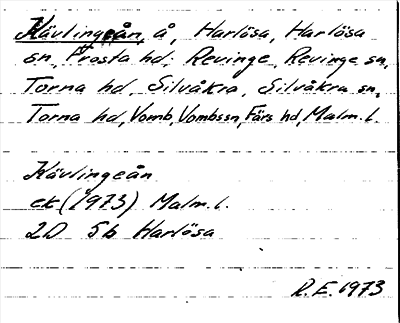 Kävlingeån, å, Harlösa, Harlösa
sn, Frosta hd; Revinge, Revinge sn,
Torna hd, Silvåkra, Silvåkra sn,
Torna hd, Vomb, Vombssn, Färs hd, Malm. l.
Kävlingeån
ek (1973) Malm. l.
2D 5b Harlösa
R.E. 1973